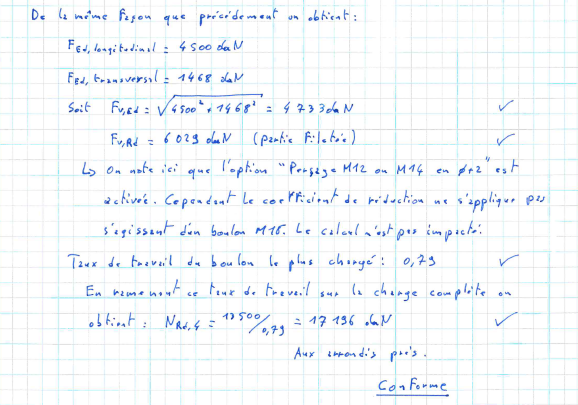 De la même façon que précédement on obtient :
FEd, longitudinal = 4500 daN
FEd, transversal = 1468 daN
Soit Fv,Ed = √4500² + 1468² = 4733 daN ✓
Fv,Rd = 6029 daN (partie filetée) ✓
↳ On note ici que l'option "Perçage M12 ou M14 en ø+2" est
activée. Cependant le coefficient de réduction ne s'applique pas
s'agissant d'un boulon M16. Le calcul n'est pas impacté.
Taux de travail du boulon le plus chargé : 0,79 ✓
En ramenant ce taux de travail sur la charge complète on
obtient : NRd,4 = 13500/0,79 = 17196 daN ✓
Aux arrondis près.
Conforme